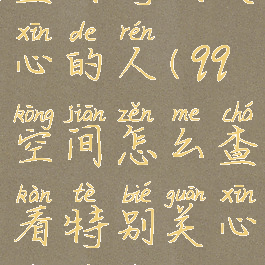 xīn de rén
心的人(99
kōng jiān zěn me chá
空间怎么查
kàn tè bié guān xīn
看特别关心